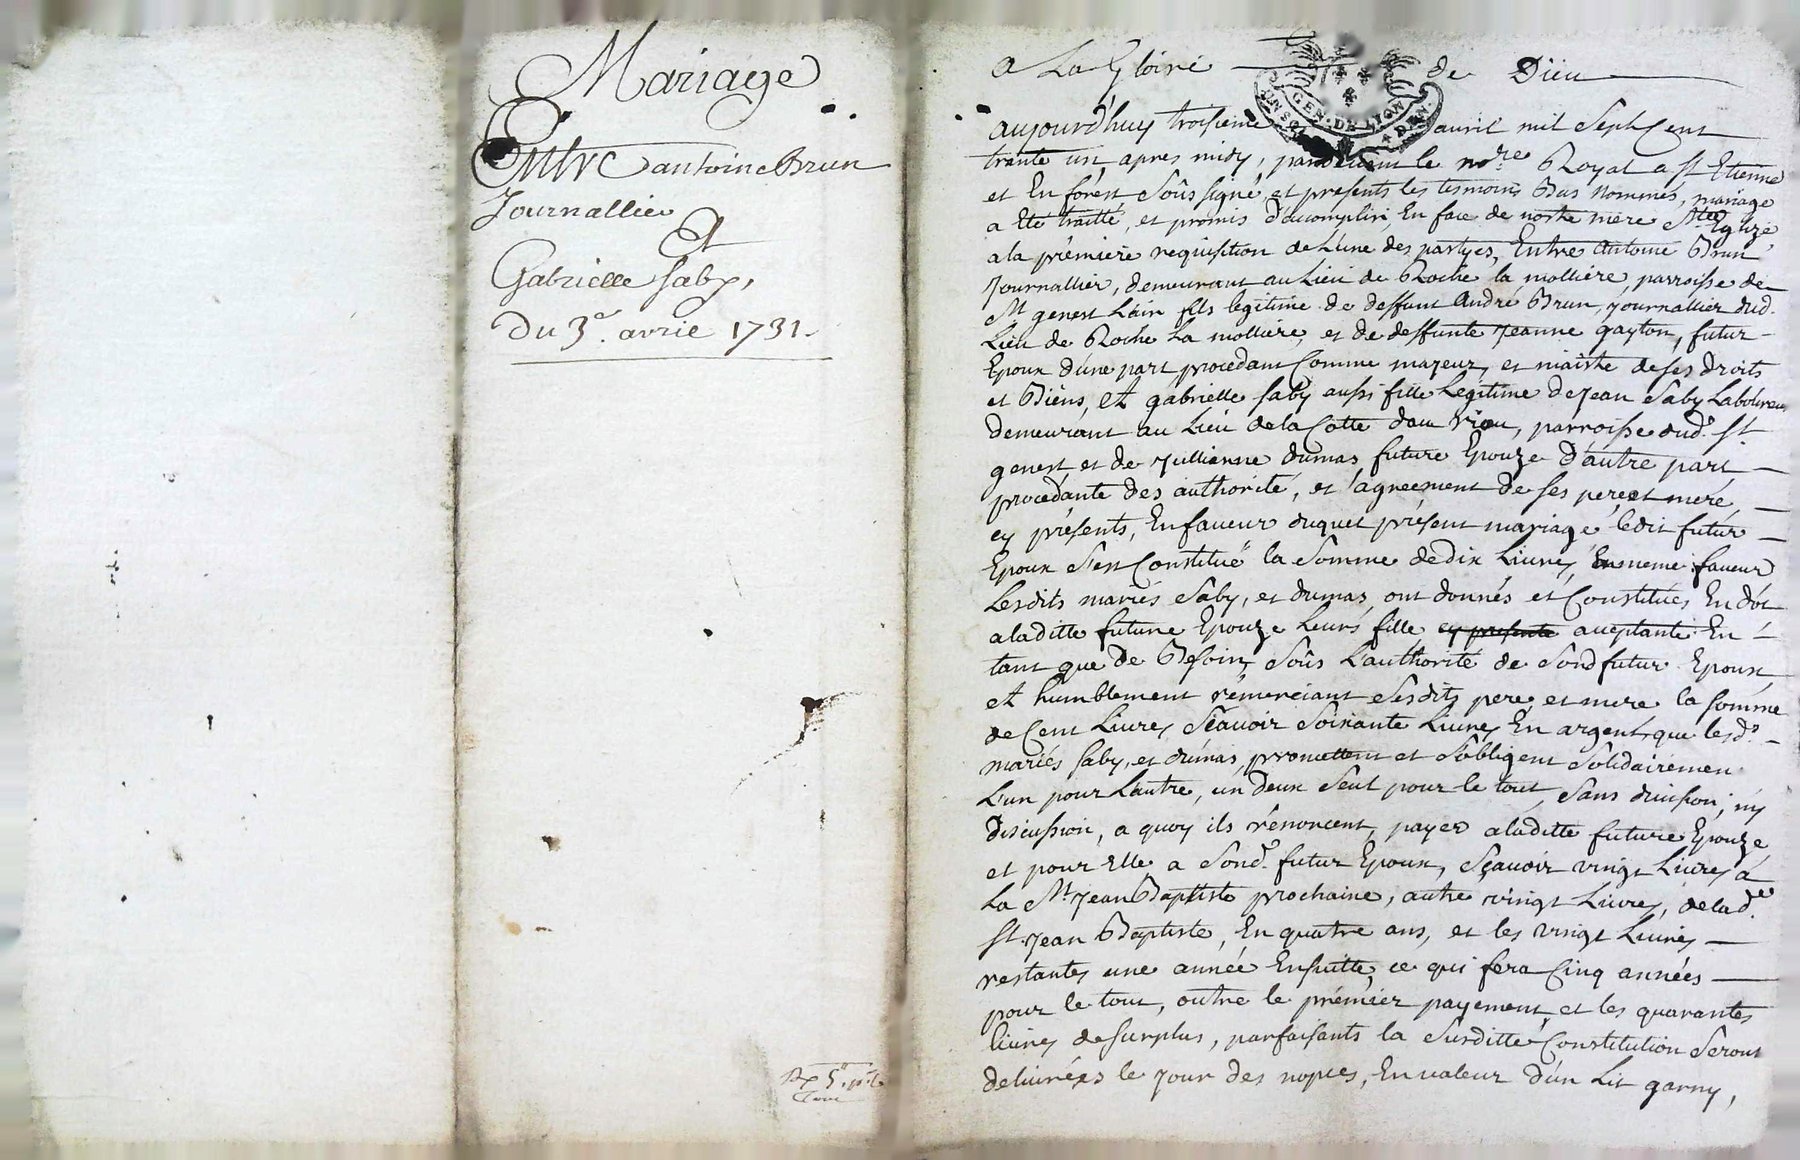 Mariage
Entre antoine Brun
Journallier
Et
Gabrielle saby,
Du 3e. avril 1731.
a La Gloire de Dieu
GEN. DE LION
aujourd'huy troisieme avril mil Sept Cent
trante un apres midy, pardevant le nore Royal a St Etienne
et En forest Soûs signé et presents les tesmoins Bas Nommés, mariage
a Eté traitté, et promis d'accomplir, En face de nostre mere Ste Eglize,
a la prémiere requisition de L'une des partyes, Entre Antoine Brun
Journallier, demeurant au Lieu de Roche la molliere, parroisse de
St genest L'air fils legitime de deffunt André Brun, journallier dud.
Lieu de Roche La molliere, et de deffunte Jeanne gayton, futur
Epoux d'une part procedant Comme majeur, et maistre de ses droits
et Biens, Et gabrielle saby aussi fille Legitime de Jean Saby Laboureur
demeurant au Lieu de la Cotte dau riou, parroisse dud. St.
genest, et de Jullienne dumas future Epouze d'autre part
procedante des authorité, et agreement de ses pere et mere
cy présents, En faveur duquel présent mariage ledit futur
Epoux s'est Constitué la Somme de dix Livres, En meme faveur
Lesdits mariés Saby, et dumas, ont donnés et Constitués En dot
a laditte future Epouze Leurs fille cy presente acceptante En
tant que de Besoin, Soûs L'authorité de Sond futur Epoux,
et humblement rémerciant Sesdits pere, et mere la somme
de Cent Livres, Sçavoir Soixante Livres En argent, que lesd.
mariés saby, et dumas, promettent et s'obligent Solidairemen
L'un pour L'autre, un deux Seul pour le tout, Sans division, ny
discussion, a quoy ils rénoncent, payer a laditte future Epouze,
et pour Elle a Sond. futur Epoux, Sçavoir vingt Livres a
La St Jean Baptiste prochaine, autre vingt Livres, de lad.e
St. Jean Baptiste, En quatre ans, et les vingt Livres
restantes une année Ensuitte, ce qui fera Cinq années
pour le tout, outre le prémier payement, et les quarantes
livres de surplus, parfaisants la Susditte Constitution Seront
delivrées le jour des nopces, En valeur d'un Lit garny,